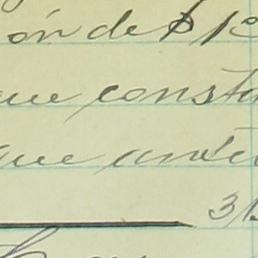 ón de $ 10
que consta
que ante
31